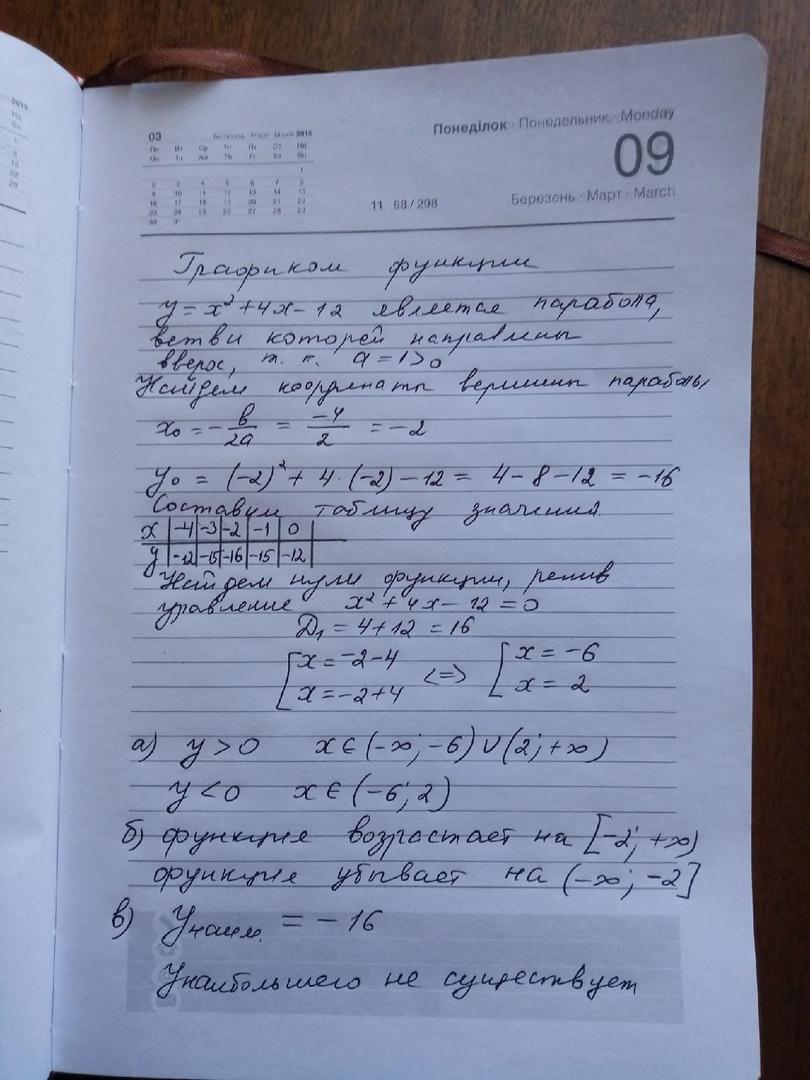 2015
Нд
03 Березень Март March 2015
Пн Вт Ср Чт Пт Сб Нд
Mo Tu We Th Fr Sa Su
1
2 3 4 5 6 7 8
9 10 11 12 13 14 15
16 17 18 19 20 21 22
23 24 25 26 27 28 29
30 31
Понеділок · Понедельник · Monday
09
11 68 / 298
Березень · Март · March
Графиком функции
y = x² + 4x - 12 является парабола,
ветви которой направлены
вверх, т. к. a = 1 > 0
Найдем координаты вершины параболы
x₀ = - в/2a = -4/2 = -2
y₀ = (-2)² + 4 · (-2) - 12 = 4 - 8 - 12 = -16
Составим таблицу значений.
x | -4 | -3 | -2 | -1 | 0 |
y | -12 | -15 | -16 | -15 | -12 |
Найдем нули функции, решив
уравнение x² + 4x - 12 = 0
D₁ = 4 + 12 = 16
[ x = -2 - 4 <=> [ x = -6
x = -2 + 4 x = 2
а) y > 0 x ∈ (-∞; -6) ∪ (2; +∞)
y < 0 x ∈ (-6; 2)
б) функция возрастает на [-2; +∞)
функция убывает на (-∞; -2]
в) Yнаим. = -16
Yнаибольшего не существует